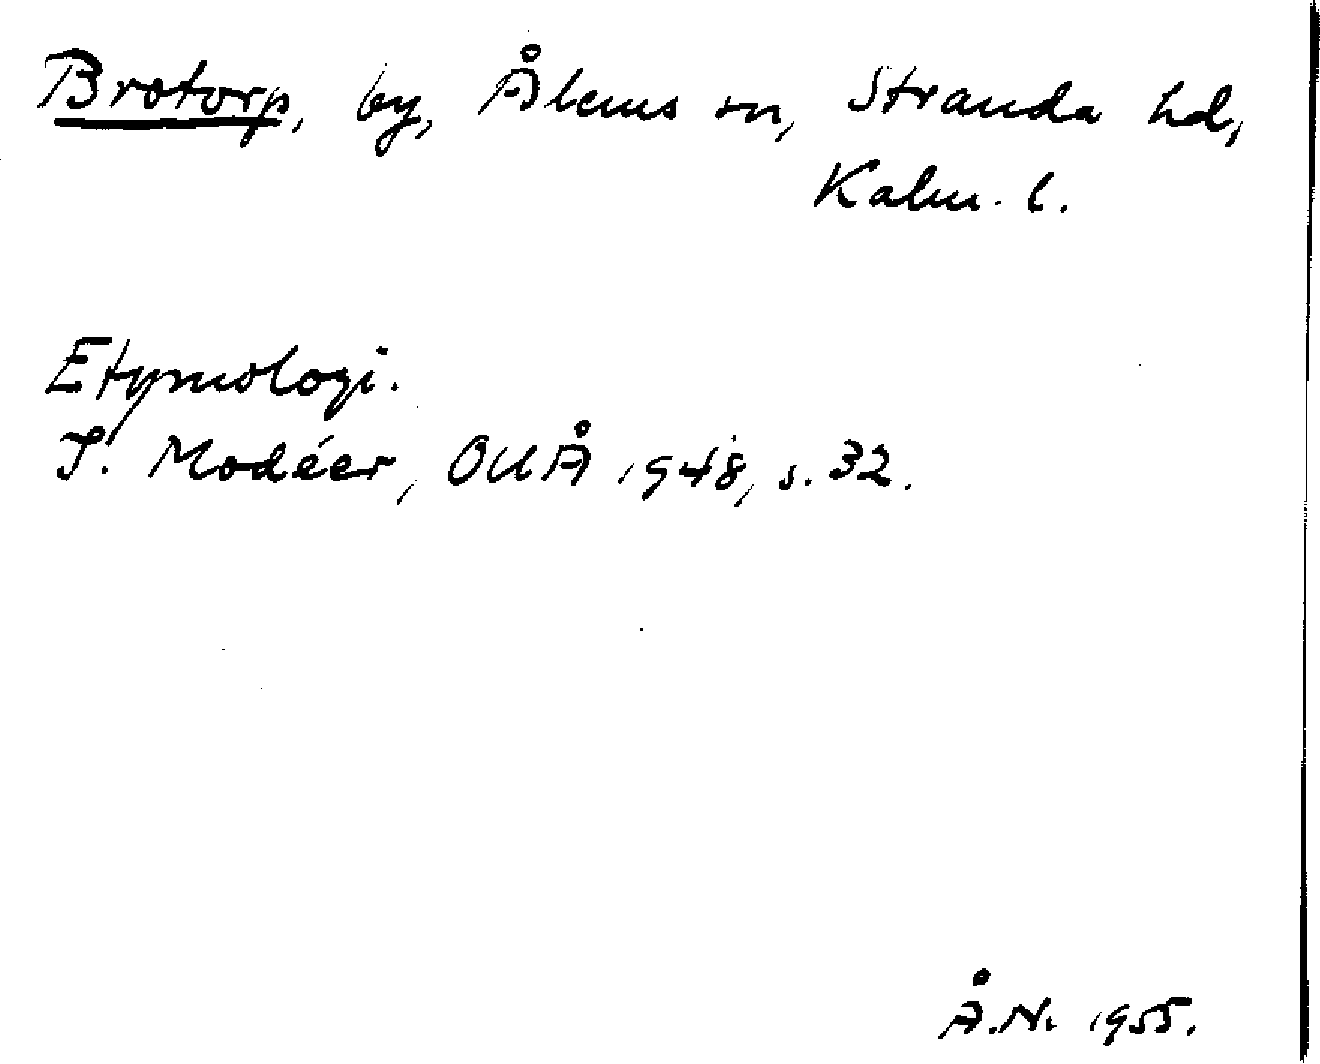 Brotorp, by, Ålems sn, Stranda hd,
Kalm. l.
Etymologi.
I. Modéer, OUÅ 1948, s. 32.
Å.N. 1955.